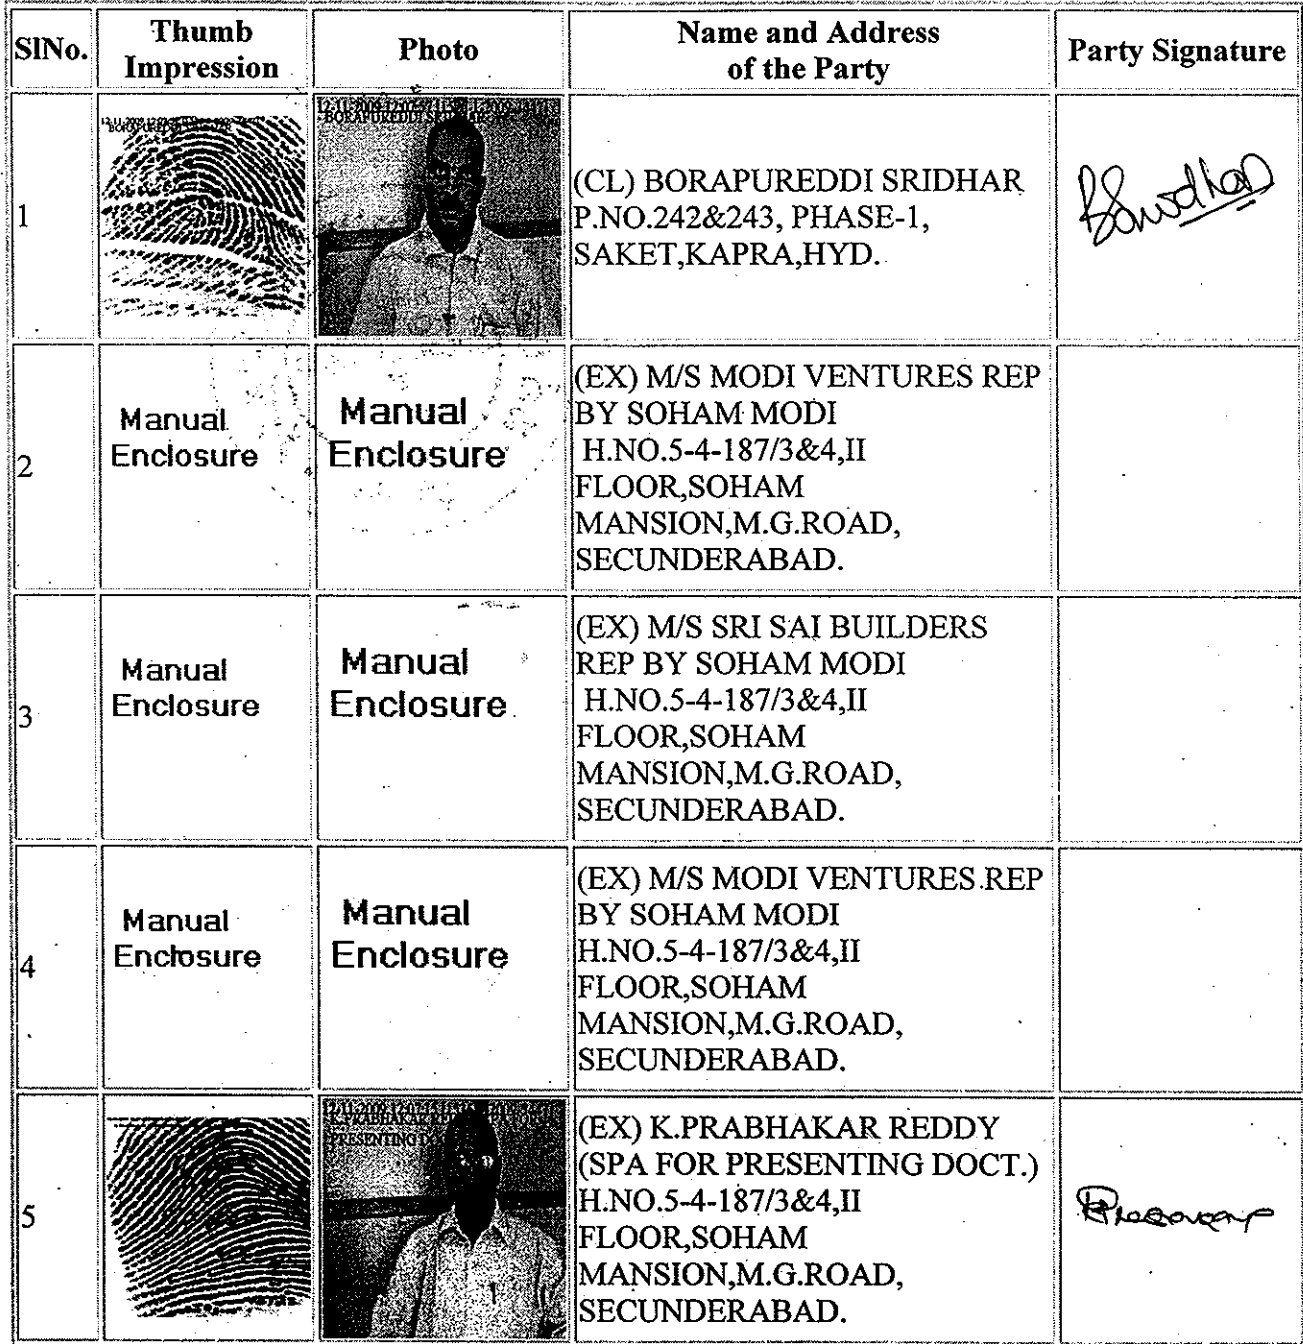 SlNo.
Thumb
Impression
Photo
Name and Address
of the Party
Party Signature
1
BORAPUREDDI
(CL) BORAPUREDDI SRIDHAR
P.NO.242&243, PHASE-1,
SAKET,KAPRA,HYD.
BSridhar
2
Manual
Enclosure
Manual
Enclosure
(EX) M/S MODI VENTURES REP
BY SOHAM MODI
H.NO.5-4-187/3&4,II
FLOOR,SOHAM
MANSION,M.G.ROAD,
SECUNDERABAD.
3
Manual
Enclosure
Manual
Enclosure
(EX) M/S SRI SAI BUILDERS
REP BY SOHAM MODI
H.NO.5-4-187/3&4,II
FLOOR,SOHAM
MANSION,M.G.ROAD,
SECUNDERABAD.
4
Manual
Enclosure
Manual
Enclosure
(EX) M/S MODI VENTURES REP
BY SOHAM MODI
H.NO.5-4-187/3&4,II
FLOOR,SOHAM
MANSION,M.G.ROAD,
SECUNDERABAD.
5
K.PRABHAKAR
PRESENTING
(EX) K.PRABHAKAR REDDY
(SPA FOR PRESENTING DOCT.)
H.NO.5-4-187/3&4,II
FLOOR,SOHAM
MANSION,M.G.ROAD,
SECUNDERABAD.